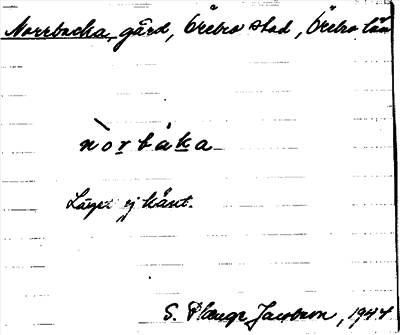 Norrbacka, gård, Örebro stad, Örebro län
nòrbáka
Läget ej känt.
S. Plauge Jacobson, 1944